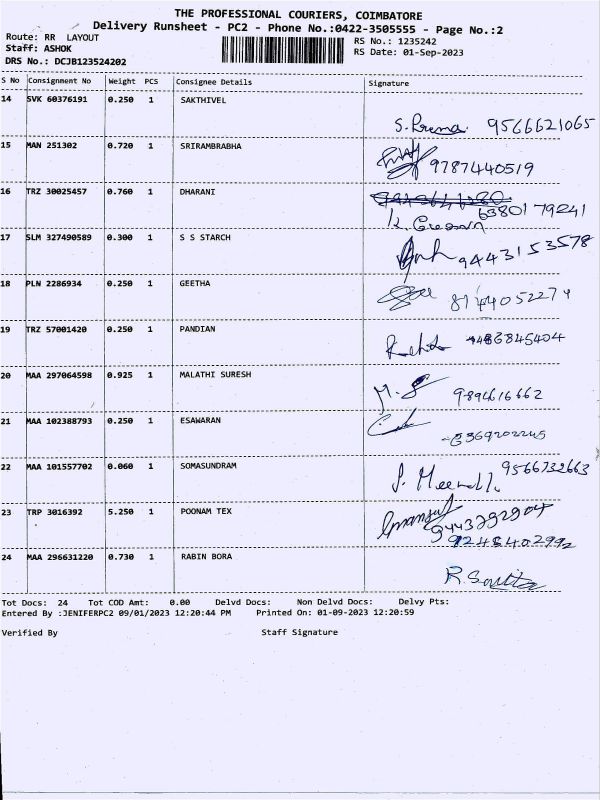 THE PROFESSIONAL COURIERS, COIMBATORE
Delivery Runsheet - PC2 - Phone No.:0422-3505555 - Page No.:2
Route: RR LAYOUT
RS No.: 1235242
Staff: ASHOK
RS Date: 01-Sep-2023
DRS No.: DCJB123524202
S No Consignment No Weight PCS Consignee Details Signature
14 SVK 60376191 0.250 1 SAKTHIVEL
9566621065
15 MAN 251302 0.720 1 SRIRAMBRABHA
9787440519
16 TRZ 30025457 0.760 1 DHARANI
6380179241
17 SLM 327490589 0.300 1 S S STARCH
9443153578
18 PLN 2286934 0.250 1 GEETHA
8144052274
19 TRZ 57001420 0.250 1 PANDIAN
20 MAA 297064598 0.925 1 MALATHI SURESH
9894616662
21 MAA 102388793 0.250 1 ESAWARAN
22 MAA 101557702 0.060 1 SOMASUNDRAM
9566732663
23 TRP 3016392 5.250 1 POONAM TEX
9443792904
24 MAA 296631220 0.730 1 RABIN BORA
Tot Docs: 24 Tot COD Amt: 0.00 Delvd Docs: Non Delvd Docs: Delvy Pts:
Entered By :JENIFERPC2 09/01/2023 12:20:44 PM Printed On: 01-09-2023 12:20:59
Verified By Staff Signature